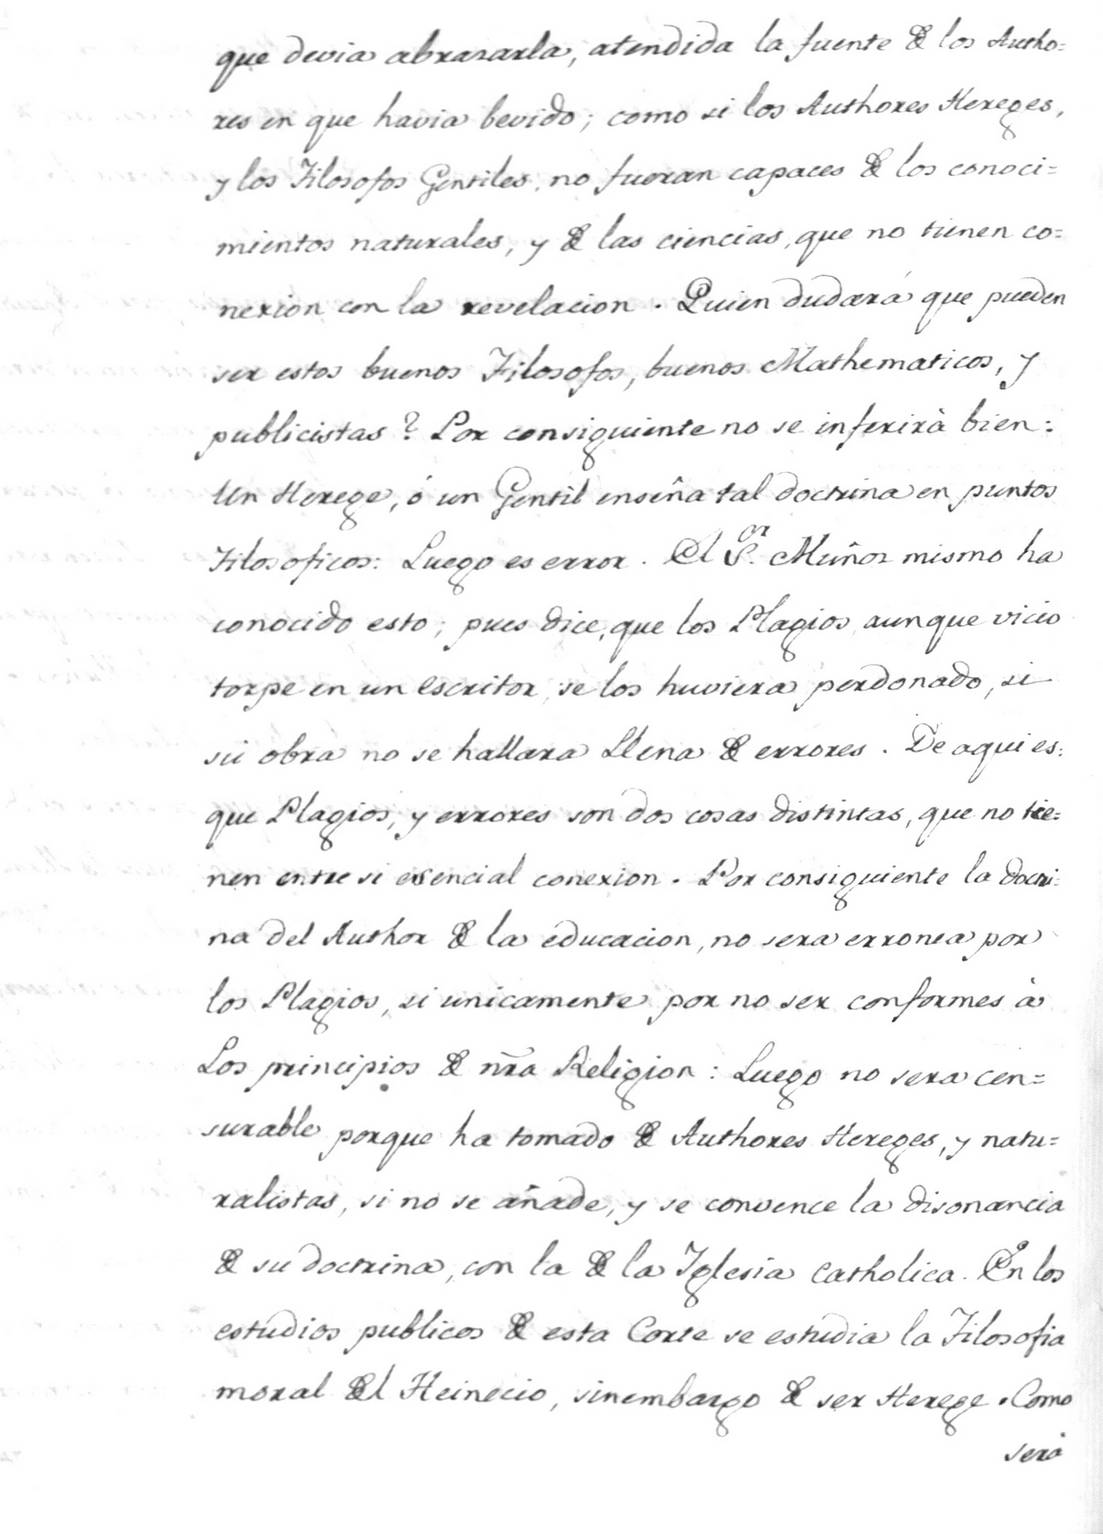 que devia abrazarla, atendida la fuente de los Autho=
res en que havia bevido; como si los Authores Hereges,
y los Filosofos Gentiles, no fueran capaces de los conoci=
mientos naturales, y de las ciencias, que no tienen co=
nexion con la revelacion. Quien dudará que pueden
ser estos buenos Filosofos, buenos Mathematicos, y
publicistas? Por consiguiente no se inferirà bien:
Un Herege, ó un Gentil enseña tal doctrina en puntos
Filosoficos: Luego es error. El S.or Muñoz mismo ha
conocido esto; pues dice, que los Plagios aunque vicio
torpe en un escritor, se los huviera perdonado, si
su obra no se hallara Llena de errores. De aqui es:
que Plagios, y errores son dos cosas distintas, que no tie=
nen entre si esencial conexion. Por consiguiente la doctri=
na del Author de la educacion, no sera erronea por
los Plagios, si unicamente por no ser conformes à
Los principios de nr̃a Religion: Luego no sera cen=
surable porque ha tomado de Authores Hereges, y natu=
ralistas, si no se añade, y se convence la disonancia
de su doctrina, con la de la Iglesia Catholica. En los
estudios publicos de esta Corte se estudia la Filosofia
moral del Heinecio, sinembargo de ser Herege. Como
será